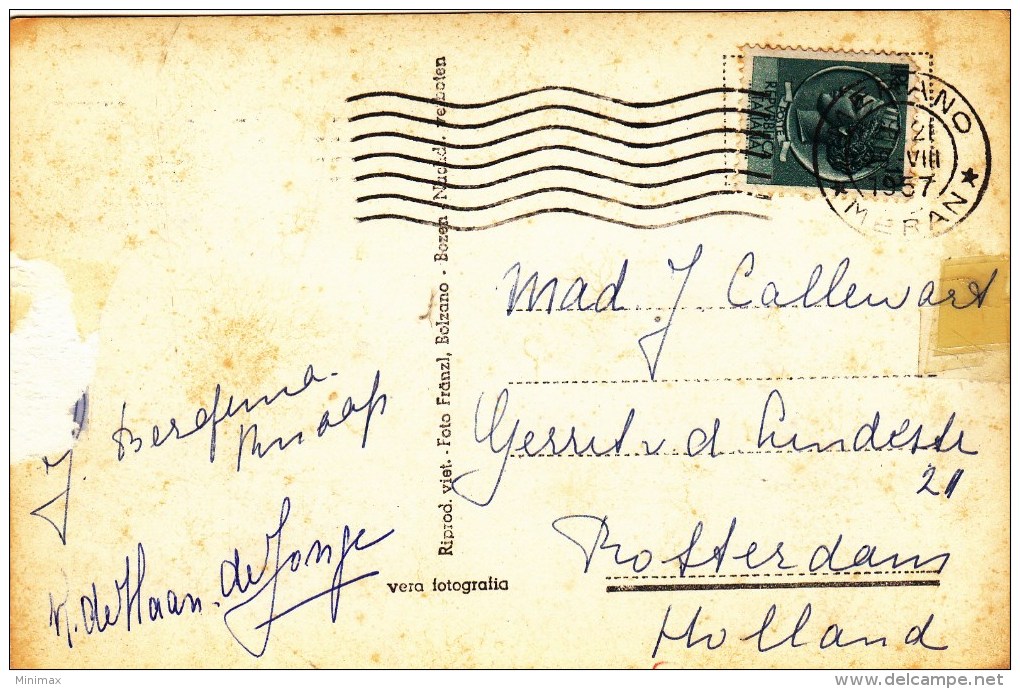 MERANO
21
VIII
1957
MERAN
REPVBBLICA
ITALIANA
Mad. J Callewart
Gerrit v d Lindestr
21
Rotterdam
Holland
J. Bergsma.
Knaap
K. de Haan. de Jonge
Riprod. viet. - Foto Fränzl, Bolzano - Bozen - Nachd. verboten
vera fotografia
Minimax
delcampe.net